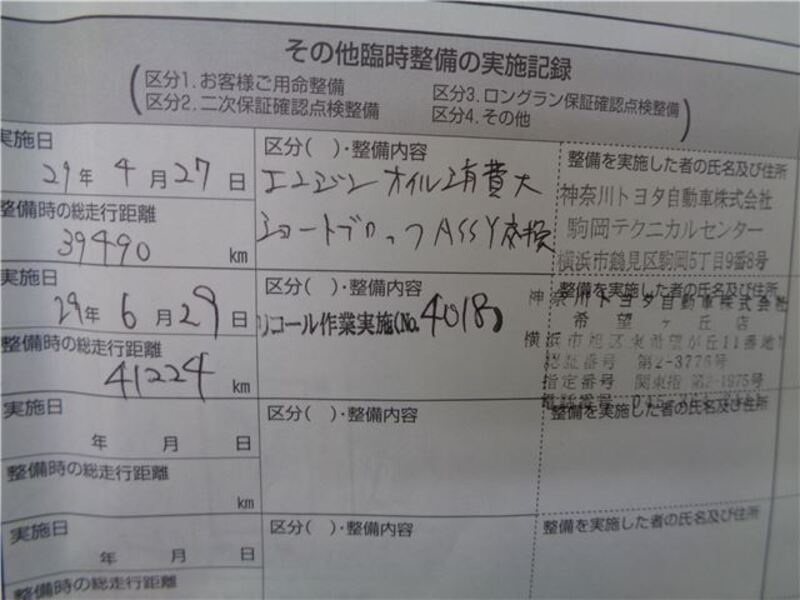 その他臨時整備の実施記録
区分1.お客様ご用命整備
区分2.二次保証確認点検整備
区分3.ロングラン保証確認点検整備
区分4.その他
実施日
29年 4月27日
整備時の総走行距離
39490 km
区分( )・整備内容
エンジンオイル消費大
ショートブロックASSY交換
整備を実施した者の氏名及び住所
神奈川トヨタ自動車株式会社
駒岡テクニカルセンター
横浜市鶴見区駒岡5丁目9番8号
実施日
29年 6月29日
整備時の総走行距離
41224 km
区分( )・整備内容
リコール作業実施(No.4018)
整備を実施した者の氏名及び住所
神奈川トヨタ自動車株式会社
希望ヶ丘店
横浜市旭区東希望が丘11番地
認証番号 第2-3776号
指定番号 関東指 第2-1975号
電話番号
実施日
年 月 日
整備時の総走行距離
km
区分( )・整備内容
整備を実施した者の氏名及び住所
実施日
年 月 日
整備時の総走行距離
区分( )・整備内容
整備を実施した者の氏名及び住所